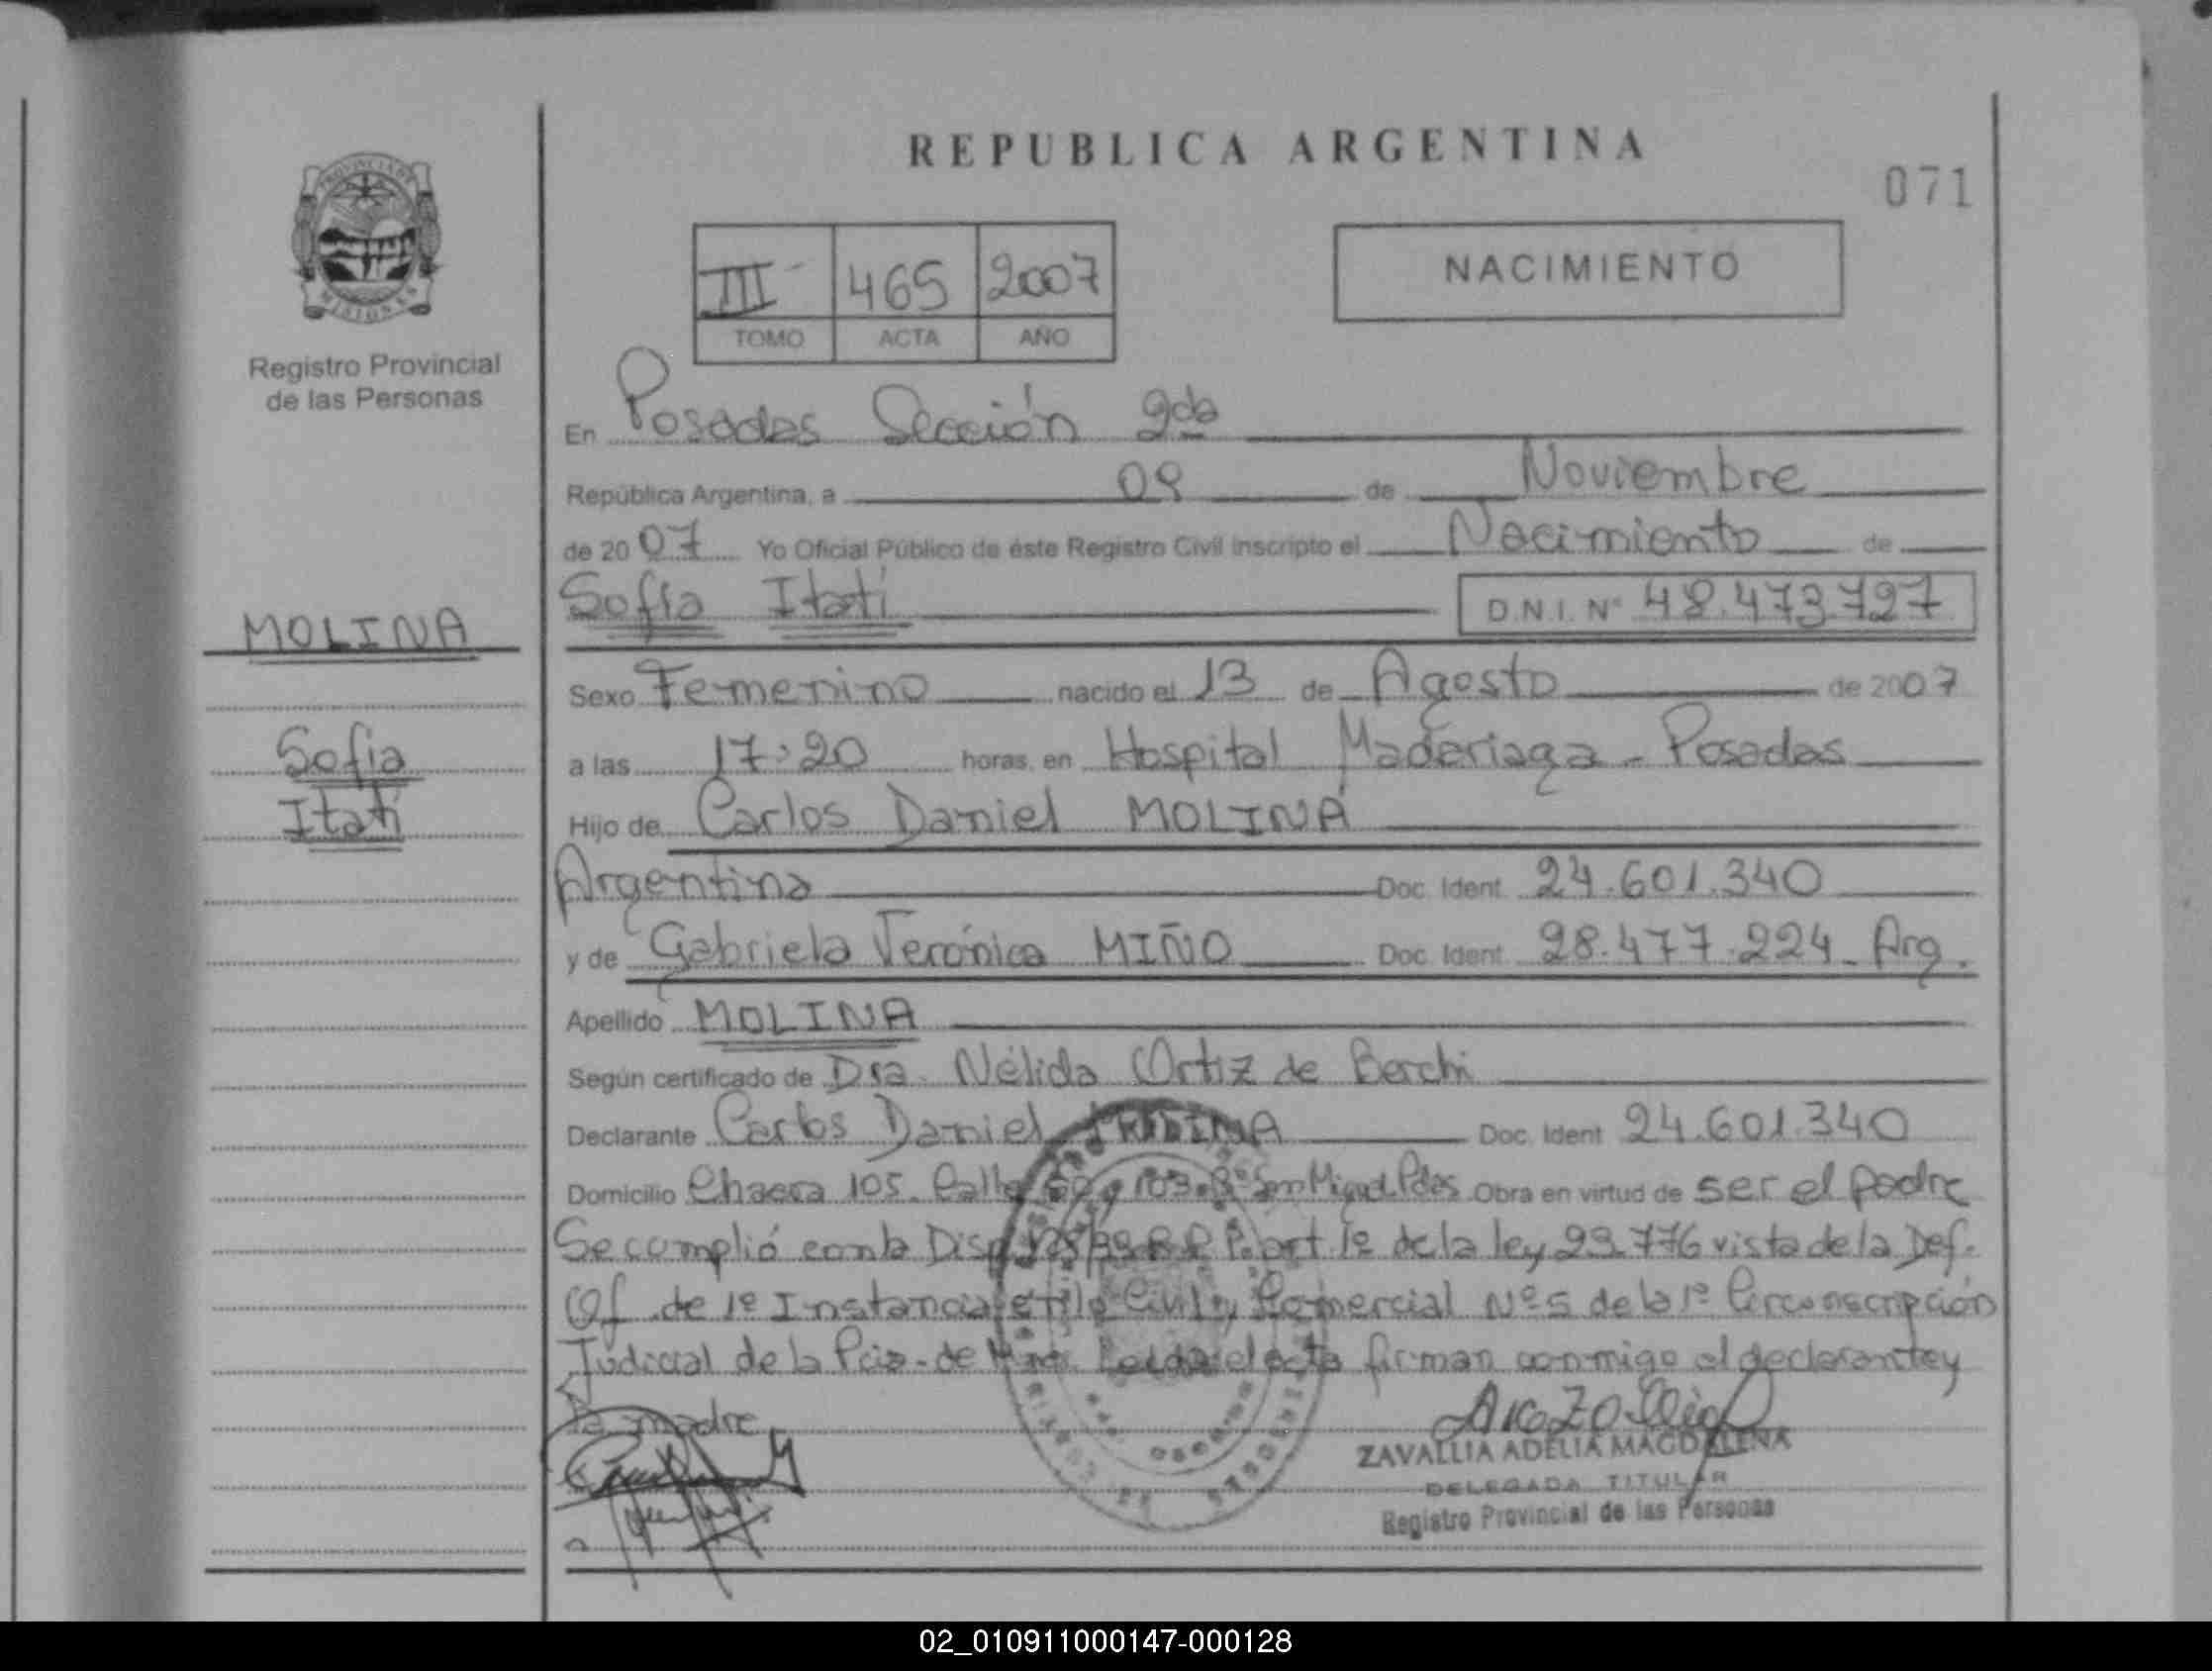 REPUBLICA ARGENTINA
071
PROVINCIA DE
MISIONES
Registro Provincial
de las Personas
III 465 2007
TOMO ACTA AÑO
NACIMIENTO
MOLINA
Sofia
Itatí
En Posadas Sección 2da
República Argentina, a 09 de Noviembre
de 2007 Yo Oficial Público de éste Registro Civil inscripto el Nacimiento de
Sofía Itatí D.N.I. Nº 48.473.727
Sexo Femenino nacido el 13 de Agosto de 2007
a las 17:20 horas, en Hospital Maderiaga - Posadas
Hijo de Carlos Daniel MOLINA
Argentina Doc. Ident. 24.601.340
y de Gabriela Verónica MIÑO Doc. Ident. 28.477.224 - Arg.
Apellido MOLINA
Según certificado de Dra. Nélida Ortiz de Berchi
Declarante Carlos Daniel MOLINA Doc. Ident. 24.601.340
Domicilio Chacra 105. Calle y 103. Bº San Miguel Pdas Obra en virtud de ser el padre
Se cumplió con la Disp R.P.P. art. 1º de la ley 23.776 vista de la Def.
Of. de 1º Instancia en lo Civil y Comercial Nº 5 de la 1º Circunscripción
Judicial de la Pcia. de Mnes. Leida el acta firman conmigo el declarante y
la madre
ZAVALLIA ADELIA MAGDALENA
DELEGADA TITULAR
Registro Provincial de las Personas
02_010911000147-000128